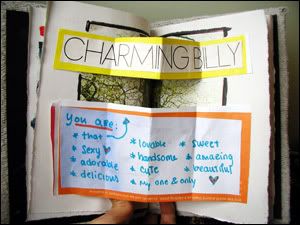 CHARMING BILLY
You are:
* that
* sexy
* adorable
* delicious
* lovable
* handsome
* cute
* my one & only
* sweet
* amazing
* beautiful